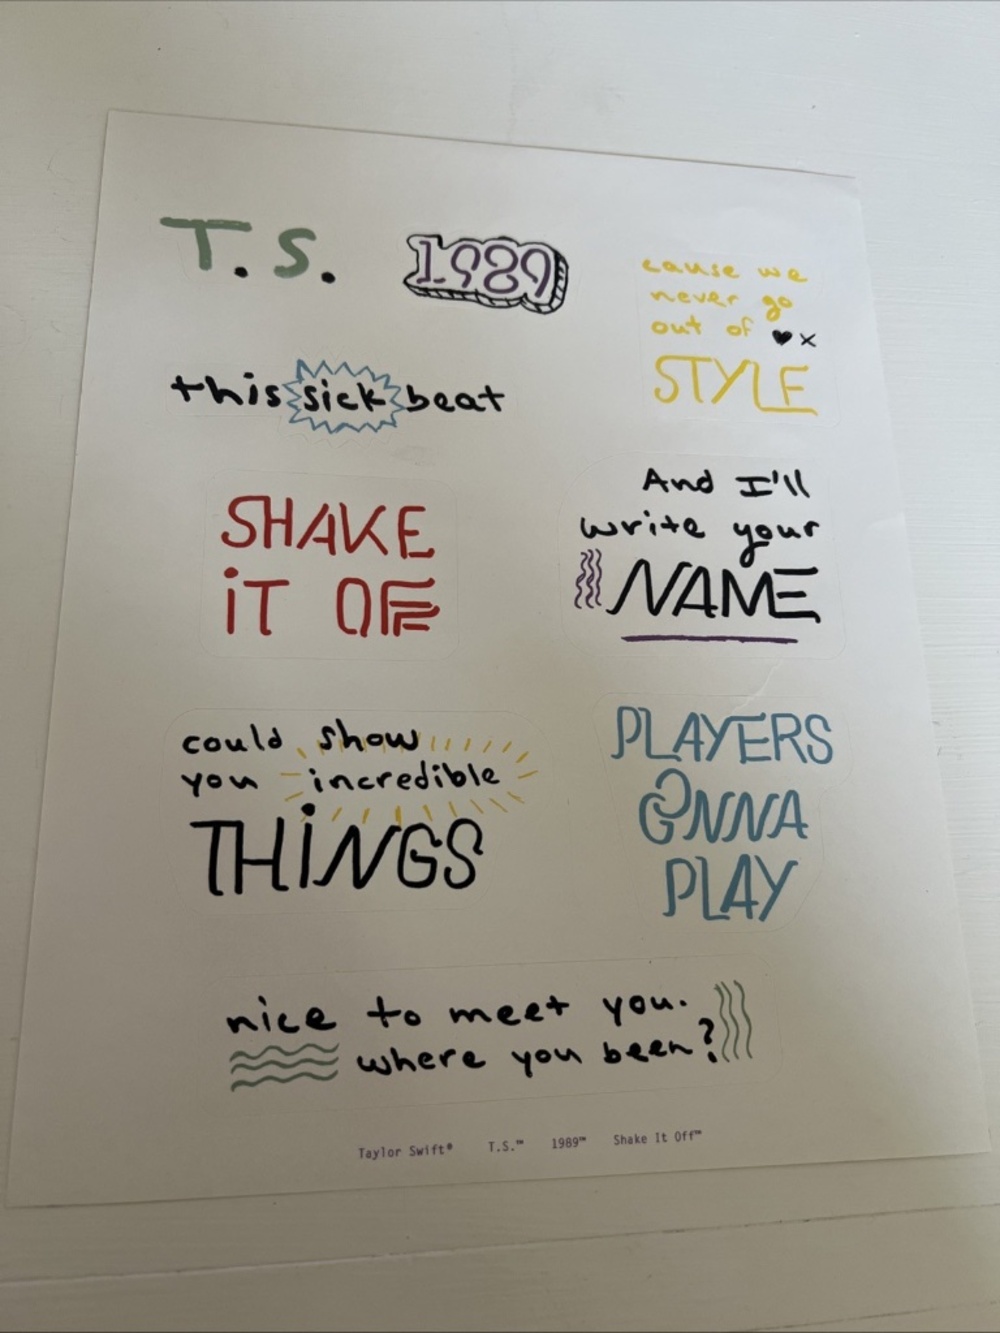 T.S.
1989
cause we
never go
out of ♥×
STYLE
this sick beat
SHAKE
iT OFF
And I'll
write your
NAME
could show
you incredible
THiNGS
PLAYERS
GONNA
PLAY
nice to meet you.
where you been?
Taylor Swift® T.S.™ 1989™ Shake It Off™